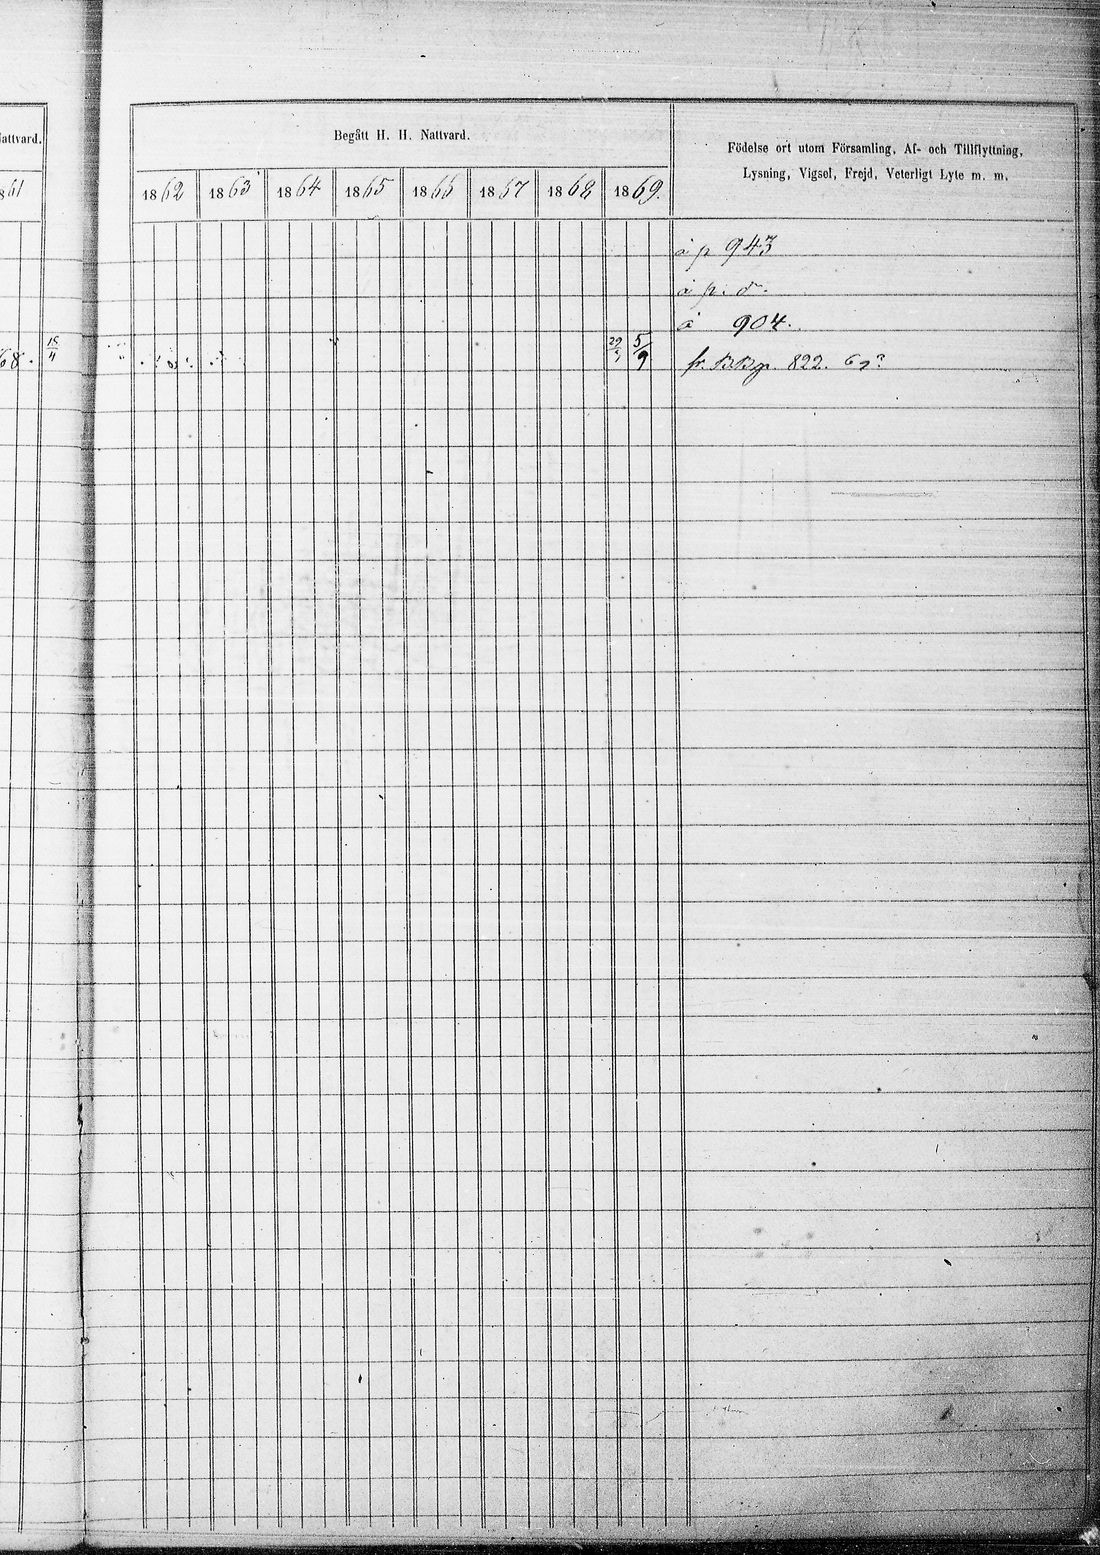 Nattvard.
61
68.
15/4
Begått H. H. Nattvard.
1862 1863 1864 1865 1866 1867 1868 1869.
Födelse ort utom Församling, Af- och Tillflyttning,
Lysning, Vigsel, Frejd, Veterligt Lyte m. m.
å p 943
å p. d:
å 904.
5/9
fr. B.B. p. 822. 69?